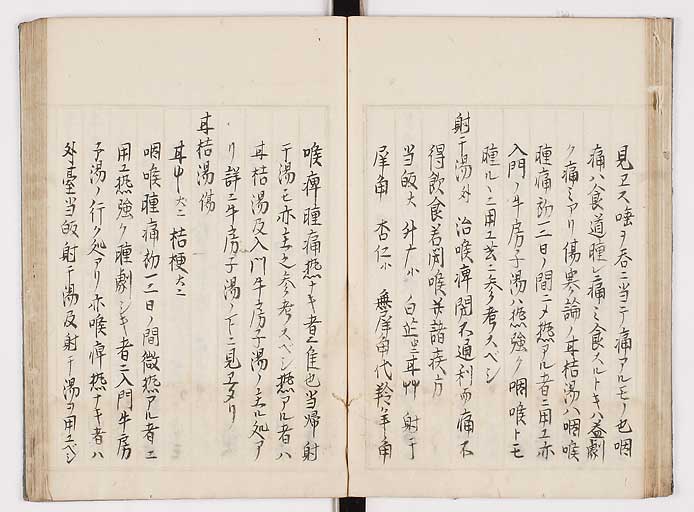 見エス唾ヲ呑ニ当テ痛アルモノ也咽
痛ハ食道腫レ痛ミ食スルトキハ益劇
ク痛ミアリ傷寒論ノ甘桔湯ハ咽喉
腫痛初一二日ノ間ニメ熱アル者ニ用エ亦
入門ノ牛房子湯ハ熱強ク咽喉トモ
腫ルヽニ用エ
射干湯外 治喉痺閉不通利而痛不
得飲食者
当皈大 升广小 白芷 甘艸 射干
犀角 杏仁小 無犀角代羚羊角
喉痺腫痛熱ナキ者ニ佳也当帰射
干湯モ亦主之参考スベシ熱アル者ハ
甘桔湯及入門牛房子湯ノ主ル処ア
リ詳ニ牛房子湯ノ下ニ見エタリ
甘桔湯傷
甘草大二 桔梗大二
咽喉腫痛初一二日ノ間微熱アル者ニ
用エ熱強ク腫劇シキ者ニ入門牛房
子湯ノ行ク処アリ亦喉痺熱ナキ者ハ
外臺当皈射干湯及射干湯ヲ用エベシ